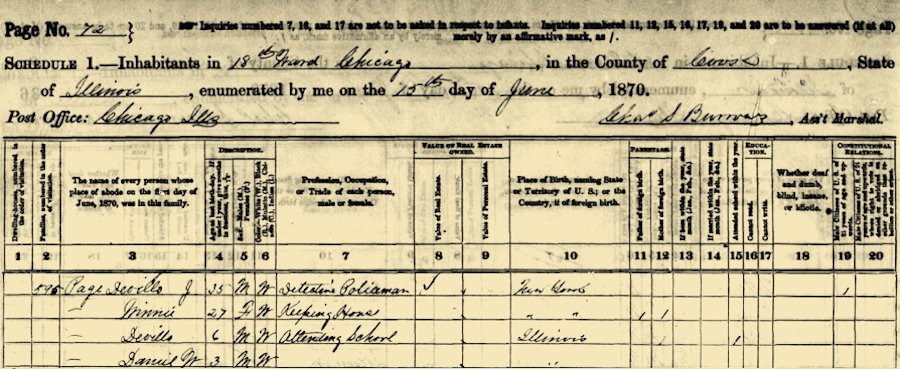 Page No. 72 } Inquiries numbered 7, 16, and 17 are not to be asked in respect to infants. Inquiries numbered 11, 12, 15, 16, 17, 19, and 20 are to be answered (if at all)
merely by an affirmative mark, as /.
SCHEDULE 1.—Inhabitants in 18th Ward Chicago, in the County of Cook, State
of Illinois, enumerated by me on the 15th day of June, 1870.
Post Office: Chicago Ills Chas S Burrows, Ass't Marshal.
Dwelling-houses, numbered in the order of visitation.
Families, numbered in the order of visitation.
The name of every person whose place of abode on the first day of June, 1870, was in this family.
DESCRIPTION.
Profession, Occupation, or Trade of each person, male or female.
VALUE OF REAL ESTATE OWNED.
Value of Real Estate.
Value of Personal Estate.
Place of Birth, naming State or Territory of U. S.; or the Country, if of foreign birth.
PARENTAGE.
Father of foreign birth.
Mother of foreign birth.
If born within the year, state month (Jan., Feb., &c.)
If married within the year, state month (Jan., Feb., &c.)
EDUCATION.
Attended school within the year.
Cannot read.
Cannot write.
Whether deaf and dumb, blind, insane, or idiotic.
CONSTITUTIONAL RELATIONS.
1 2 3 4 5 6 7 8 9 10 11 12 13 14 15 16 17 18 19 20
545 Page Devillo J 35 M W Detective Policeman New York 1
— Minnie 27 F W Keeping House " " 1 1
— Devillo 6 M W Attending School Illinois 1
— Daniel W 3 M W "